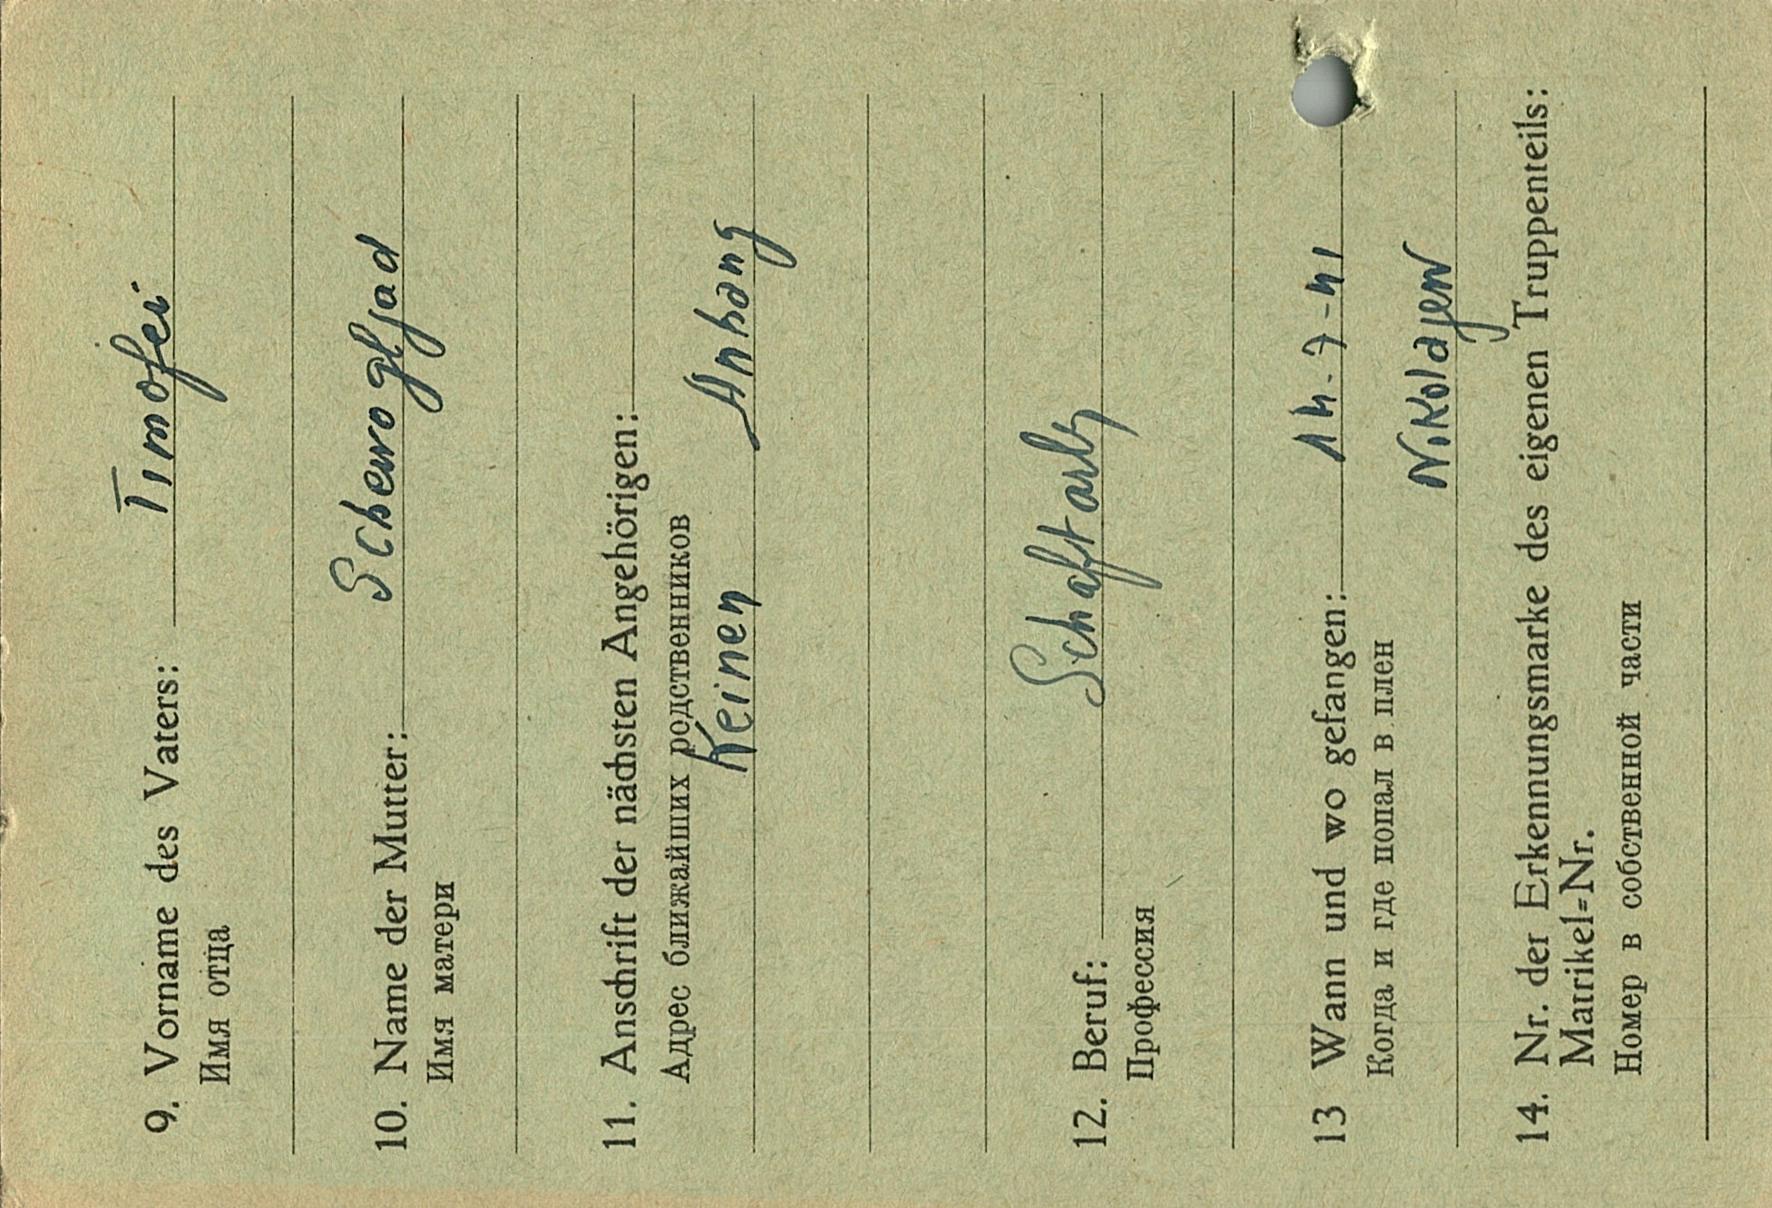 9. Vorname des Vaters: Timofei
Имя отца
10. Name der Mutter: Schewogljad
Имя матери
11. Anschrift der nächsten Angehörigen:
Адрес ближайших родственников
Keinen Anhang
12. Beruf:
Профессия
13 Wann und wo gefangen: 14-7-41
Когда и где попал в плен
Nikolajew
14. Nr. der Erkennungsmarke des eigenen Truppenteils:
Matrikel=Nr.
Номер в собственной части